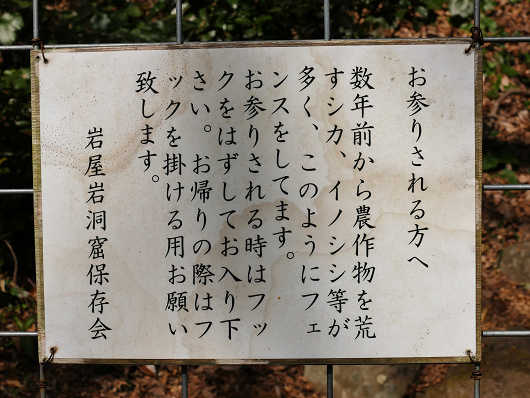 お参りされる方へ
数年前から農作物を荒
すシカ、イノシシ等が
多く、このようにフェ
ンスをしてます。
お参りされる時はフッ
クをはずしてお入り下
さい。お帰りの際はフ
ックを掛ける用お願い
致します。
岩屋岩洞窟保存会